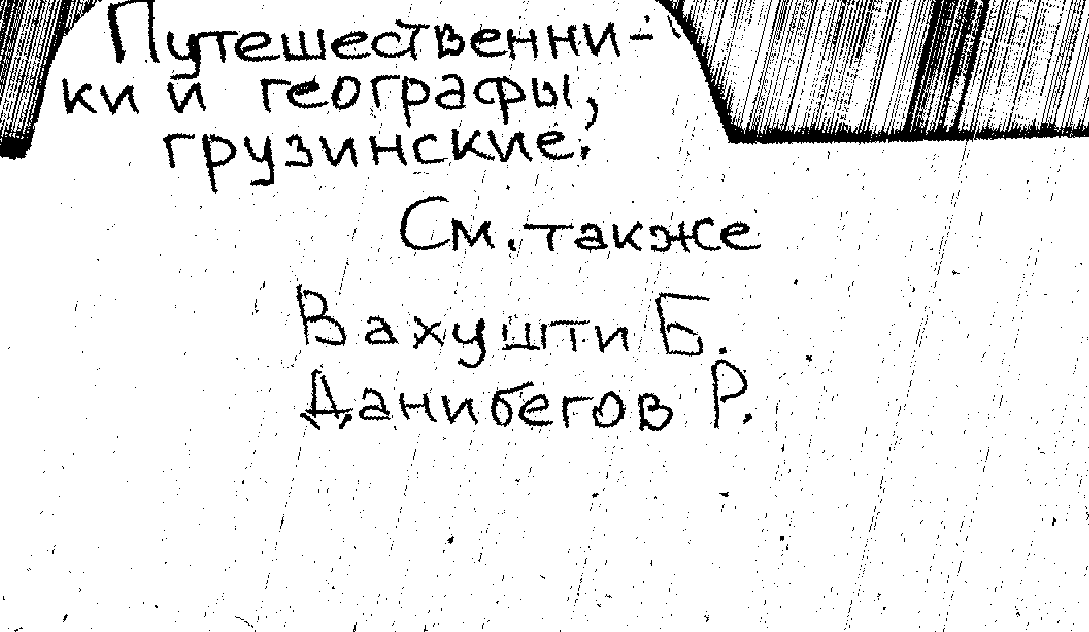 Путешественни-
ки и географы,
грузинские.
См. также
Вахушти Б.
Данибегов Р.